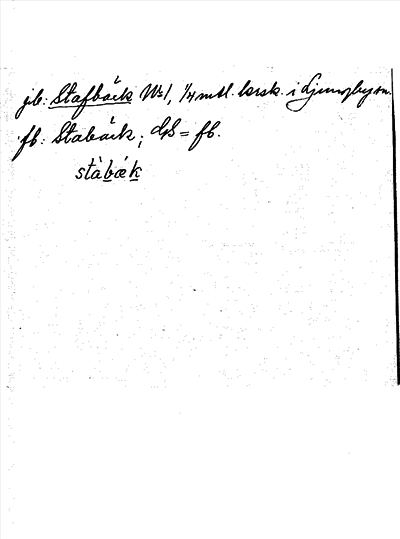 jb: Stafbäck № 1, 1/4 mtl. krsk. i Ljungbysn.
fb: Stabäck; dß = fb.
stàbæk